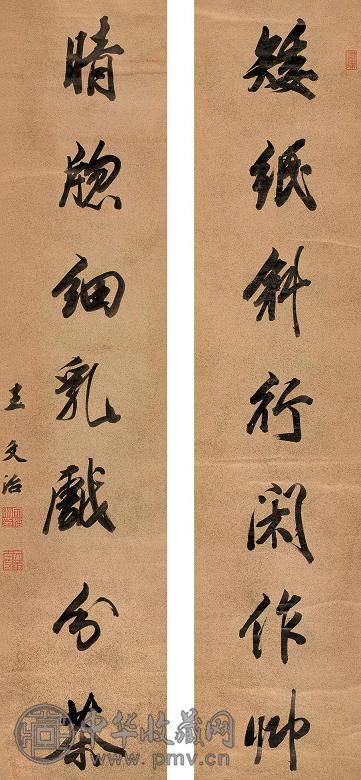 矮紙斜行閑作艸
晴牕細乳戲分茶
王文治
中华收藏网
www.pmv.cn